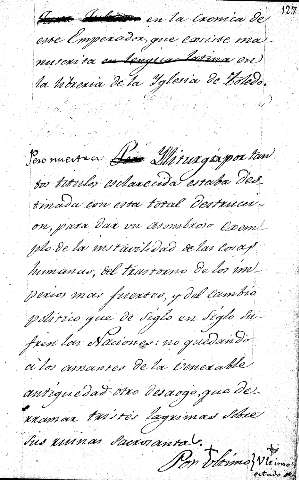 127
en la Cronica de
este Emperador, que existe ma-
nuscrita en lengua latina en
la libreria de la Iglesia de Toledo.
Pero nuestra Illiturgi por tan
tos titulos esclarecida estaba des
tinada con esta total destruci-
on, para dar un asombroso exem
plo de la instavilidad de las cosas
humanas, del trastorno de los im
perios mas fuertes, y del cambio
politico que de siglo en siglo su-
fren las Naciones: no quedando
à los amantes de la venerable
antiguedad otro desaogo, que de-
rramar tristes lagrimas sobre
sus ruinas sacrosantas.
Por Ultimo Ultimo
estado de